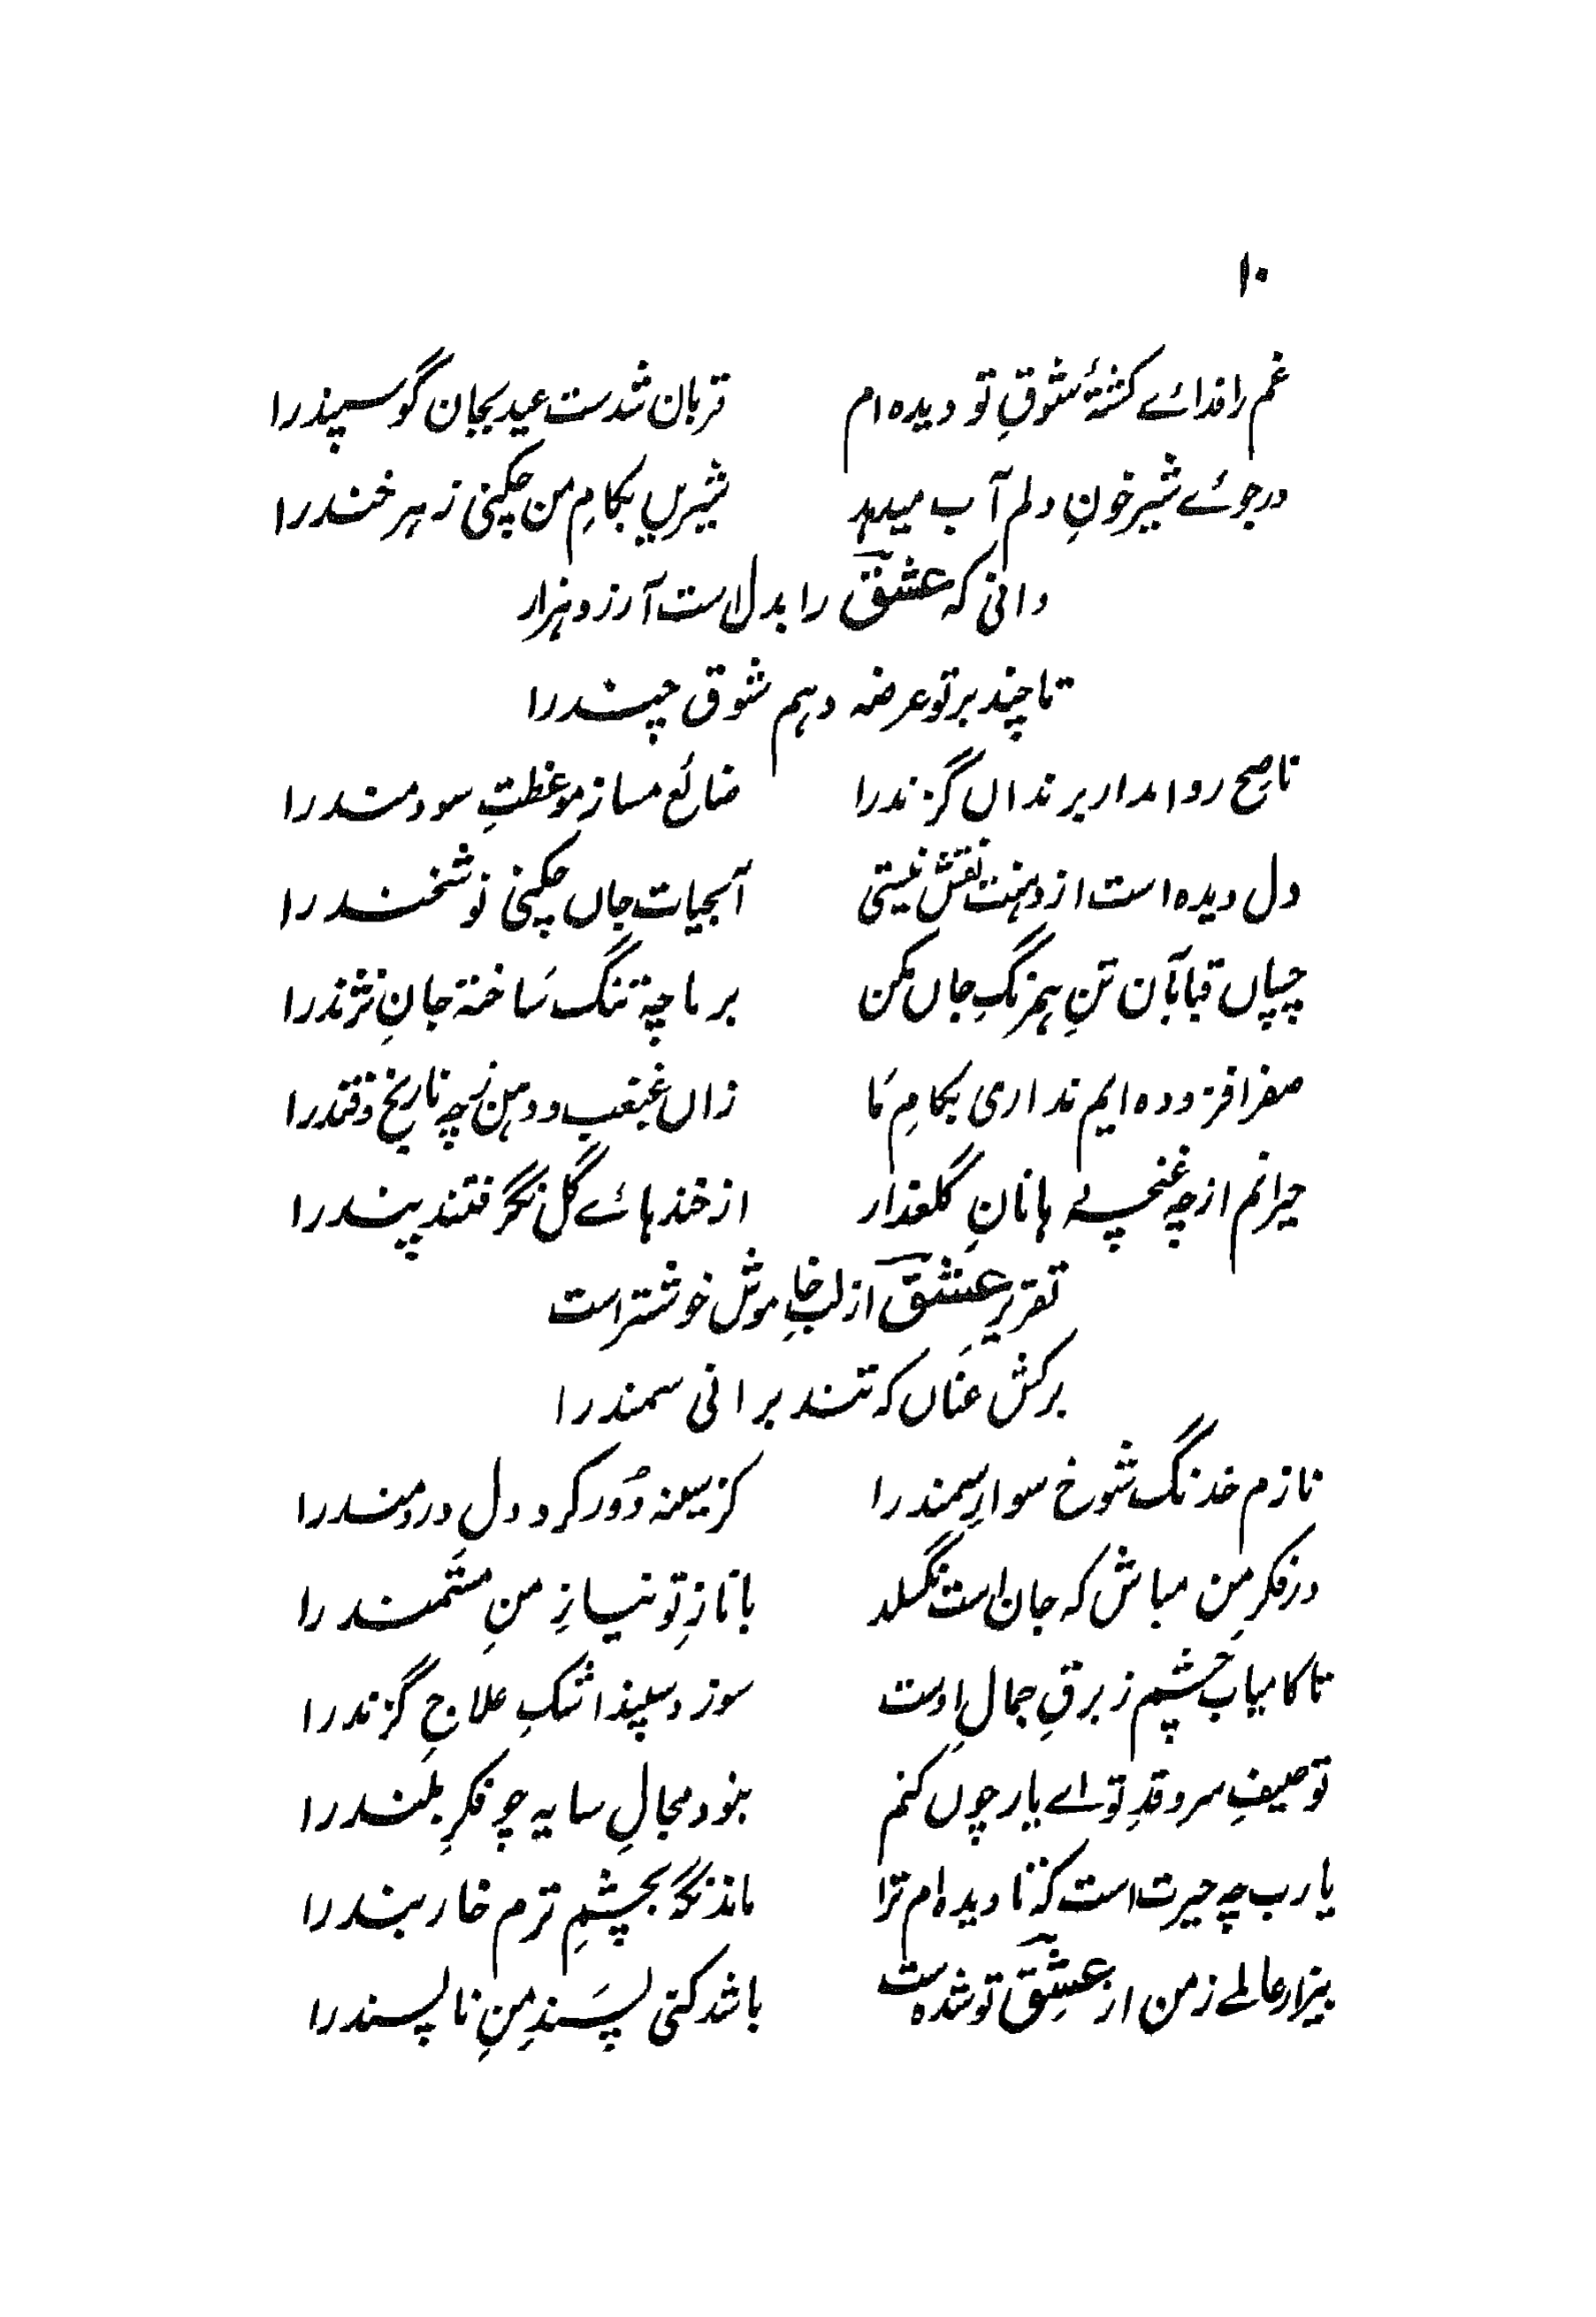 ۱۰
غم را فدائے کشتۂ شوقِ تو دیده ام قربان شدست عید بجان گوسپند را
در جوئے شیر خونِ دلم آب میدہد شیریں بکامِ من چکنی زہر خند را
دانی کہ عشق را بدل است آرزو ہزار
تا چند بر تو عرضہ دہم شوق چند را
ناصح روا مدار برنداں گزند را ضائع مساز موعظتِ سودمند را
دل دیده است از دہنت نقش نیستی آبحیات جاں چکنی نوشخند را
چسپاں قبا بآن تنِ ہمرنگِ جاں مکن بر ما چہ تنگ ساختۂ جانِ نژند را
صفرا فزوده ایم نداری بکامِ ما زاں غبغب و دہن زچہ نارنج و قند را
حیرانم از چہ غنچہ دہانانِ گلعذار از خندہائے گل نگرفتند پند را
تقریرِ عشق از لبِ خاموش خوشتر است
برکش عناں کہ تند برانی سمند را
نازم خدنگ شوخ سوارِ سمند را کز سینہ دُور کرد دلِ دردمند را
در فکرِ من مباش کہ جان است نگسلد با نازِ تو نیازِ منِ مستمند را
تا کامیاب چشم ز برقِ جمالِ اوست سوزد سپند اشکِ علاجِ گزند را
توصیفِ سرو قدِ تو اے یار چوں کنم نبود مجالِ سایہ چو فکرِ بلند را
یارب چہ حیرت است کہ تا دیده ام ترا ماند نگہ بچشمِ ترم خار بند را
بیزار عالمے ز من از عشقِ تو شده است باشد کنی پسندِ منِ ناپسند را